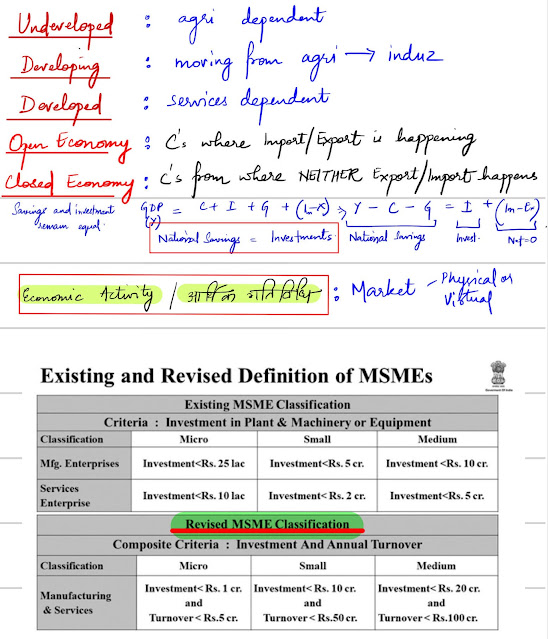 Undeveloped : agri dependent
Developing : moving from agri → induz
Developed : services dependent
Open Economy : C's where Import/Export is happening
Closed Economy : C's from where NEITHER Export/Import happens
Savings and investment remain equal.
GDP (Y) = C + I + G + (Im-X) ⇒ Y - C - G = I + (Im-Ex)
National Savings = Investments.
National Savings Invest. Net=0
Economic Activity / आर्थिक गतिविधि : Market - Physical or Virtual
Existing and Revised Definition of MSMEs
Government Of India
Existing MSME Classification
Criteria : Investment in Plant & Machinery or Equipment
Classification Micro Small Medium
Mfg. Enterprises Investment<Rs. 25 lac Investment<Rs. 5 cr. Investment <Rs. 10 cr.
Services Enterprise Investment<Rs. 10 lac Investment< Rs. 2 cr. Investment<Rs. 5 cr.
Revised MSME Classification
Composite Criteria : Investment And Annual Turnover
Classification Micro Small Medium
Manufacturing & Services Investment< Rs. 1 cr. and Turnover < Rs.5 cr. Investment< Rs. 10 cr. and Turnover < Rs.50 cr. Investment< Rs. 20 cr. and Turnover < Rs.100 cr.